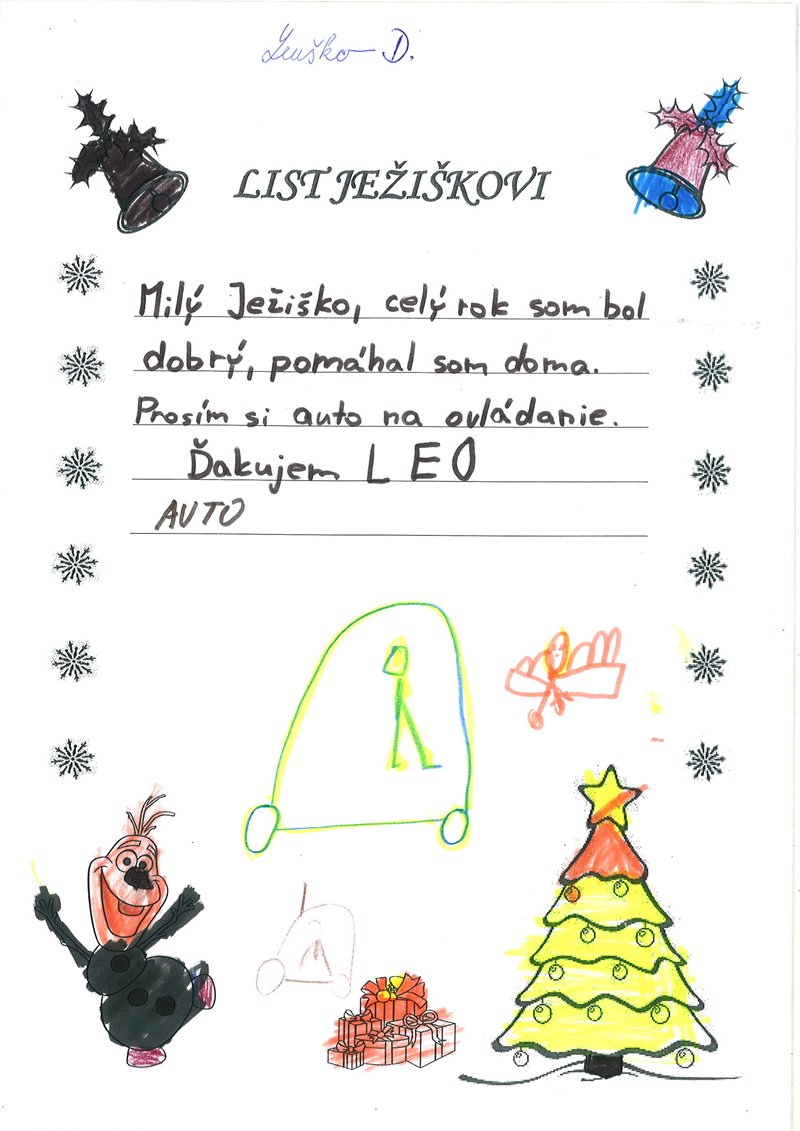 Leuško D.
LIST JEŽIŠKOVI
Milý Ježiško, celý rok som bol
dobrý, pomáhal som doma.
Prosím si auto na ovládanie.
Ďakujem LEO
AUTO